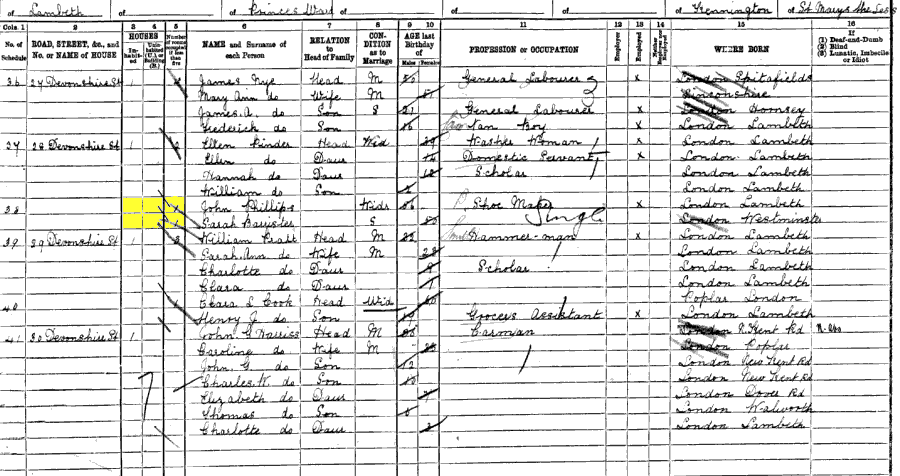 of Lambeth of of Princes Ward of of Kennington of St Marys the Less
Cols. 1 2 3 4 5 6 7 8 9 10 11 12 13 14 15 16
No. of Schedule ROAD, STREET, &c., and No. or NAME of HOUSE HOUSES Inhabited Uninhabited (U.), or Building (B.) Number of rooms occupied if less than five NAME and Surname of each Person RELATION to Head of Family CONDITION as to Marriage AGE last Birthday of Males Females PROFESSION or OCCUPATION Employer Employed Neither Employer nor Employed WHERE BORN If (1) Deaf-and-Dumb (2) Blind (3) Lunatic, Imbecile or Idiot
36 27 Devonshire St 1 James Nye Head M General Labourer x London Spitalfields
Mary Ann do Wife M
James A. do Son S 21 General Labourer x London Hornsey
Frederick do Son 16 Van Boy x London Lambeth
37 28 Devonshire St 1 Ellen Kinder Head Wid Washer Woman x London Lambeth
Ellen do Daur Domestic Servant x London Lambeth
Hannah do Daur Scholar London Lambeth
William do Son London Lambeth
38 John Phillips Widr 56 Shoe Maker x London Lambeth
Sarah Barrister S Single London Westminster
39 29 Devonshire St 1 William Pratt Head M Hammer-man x London Lambeth
Sarah Ann do Wife M London Lambeth
Charlotte do Daur Scholar London Lambeth
Clara do Daur London Lambeth
40 Clara S Cook Head Wid Poplar London
Henry J. do Son 19 Grocers Assistant x London Lambeth
41 30 Devonshire St 1 John G Harriss Head M Carman London Kent Rd
Caroline do Wife M London Poplar
John G. do Son 12 London New Kent Rd
Charles W. do Son 10 London New Kent Rd
Elizabeth do Daur London Dover Rd
Thomas do Son London Walworth
Charlotte do Daur London Lambeth